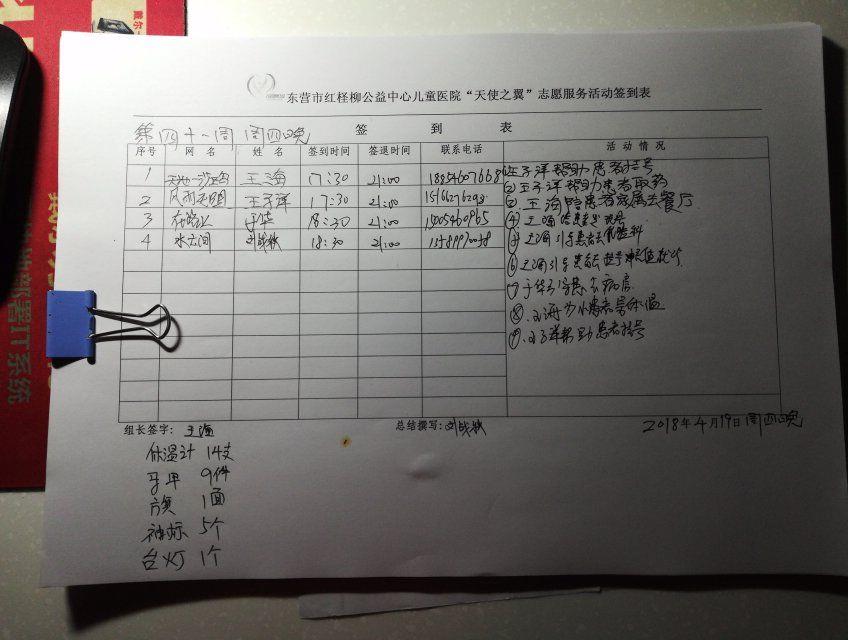 东营市红柽柳公益中心儿童医院“天使之翼”志愿服务活动签到表
第四十一周 周四晚
签到表
序号 网名 姓名 签到时间 签退时间 联系电话 活动情况
1 王海 17:30 21:00 18854607668
2 风雨 王子洋 17:30 21:00 15166276293
3 在路上 于华 18:30 21:00 15005460965
4 水云间 18:30 21:00
①王子洋帮助患者挂号
②王子洋帮助患者取药
③王海陪患者家属去餐厅
④王海
⑤王海引导患者去
⑥王海引导患者去
⑦于华引导患者病房
⑧王海为小患者量体温
⑨王子洋帮助患者挂号
组长签字：王海 总结撰写： 2018年4月19日周四晚
体温计 14支
马甲 9件
1面
袖标 5个
台灯 1个
部署IT系统